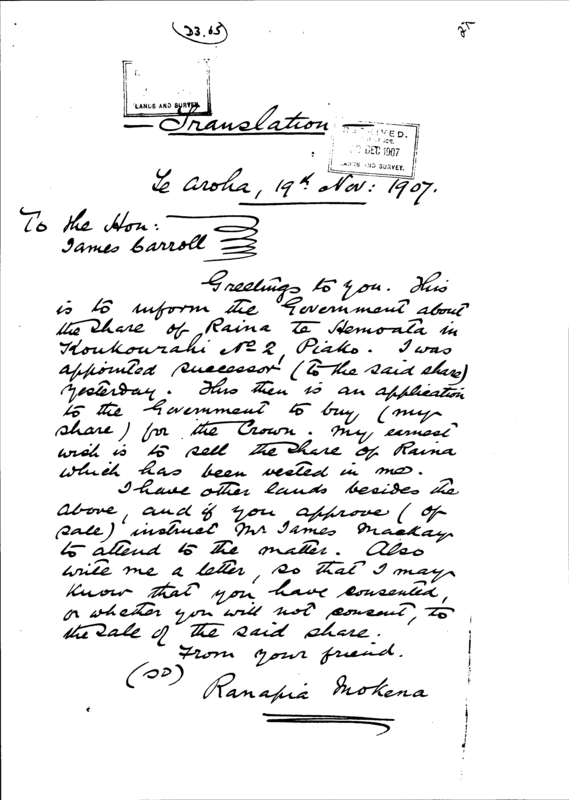 D3.65
LANDS AND SURVEY.
Translation
RECEIVED.
DEC 1907
LANDS AND SURVEY.
Te Aroha, 19th Nov: 1907.
To the Hon:
James Carroll
Greetings to you. This
is to inform the Government about
the share of Raina te Hemoata in
Koukourahi No 2, Piako. I was
appointed successor (to the said share)
yesterday. This then is an application
to the Government to buy (my
share) for the Crown. My earnest
wish is to sell the share of Raina
which has been vested in me.
I have other lands besides the
above, and if you approve (of
sale) instruct Mr James Mackay
to attend to the matter. Also
write me a letter, so that I may
know that you have consented,
or whether you will not consent, to
the sale of the said share.
From your friend.
(SD)
Ranapia Mokena